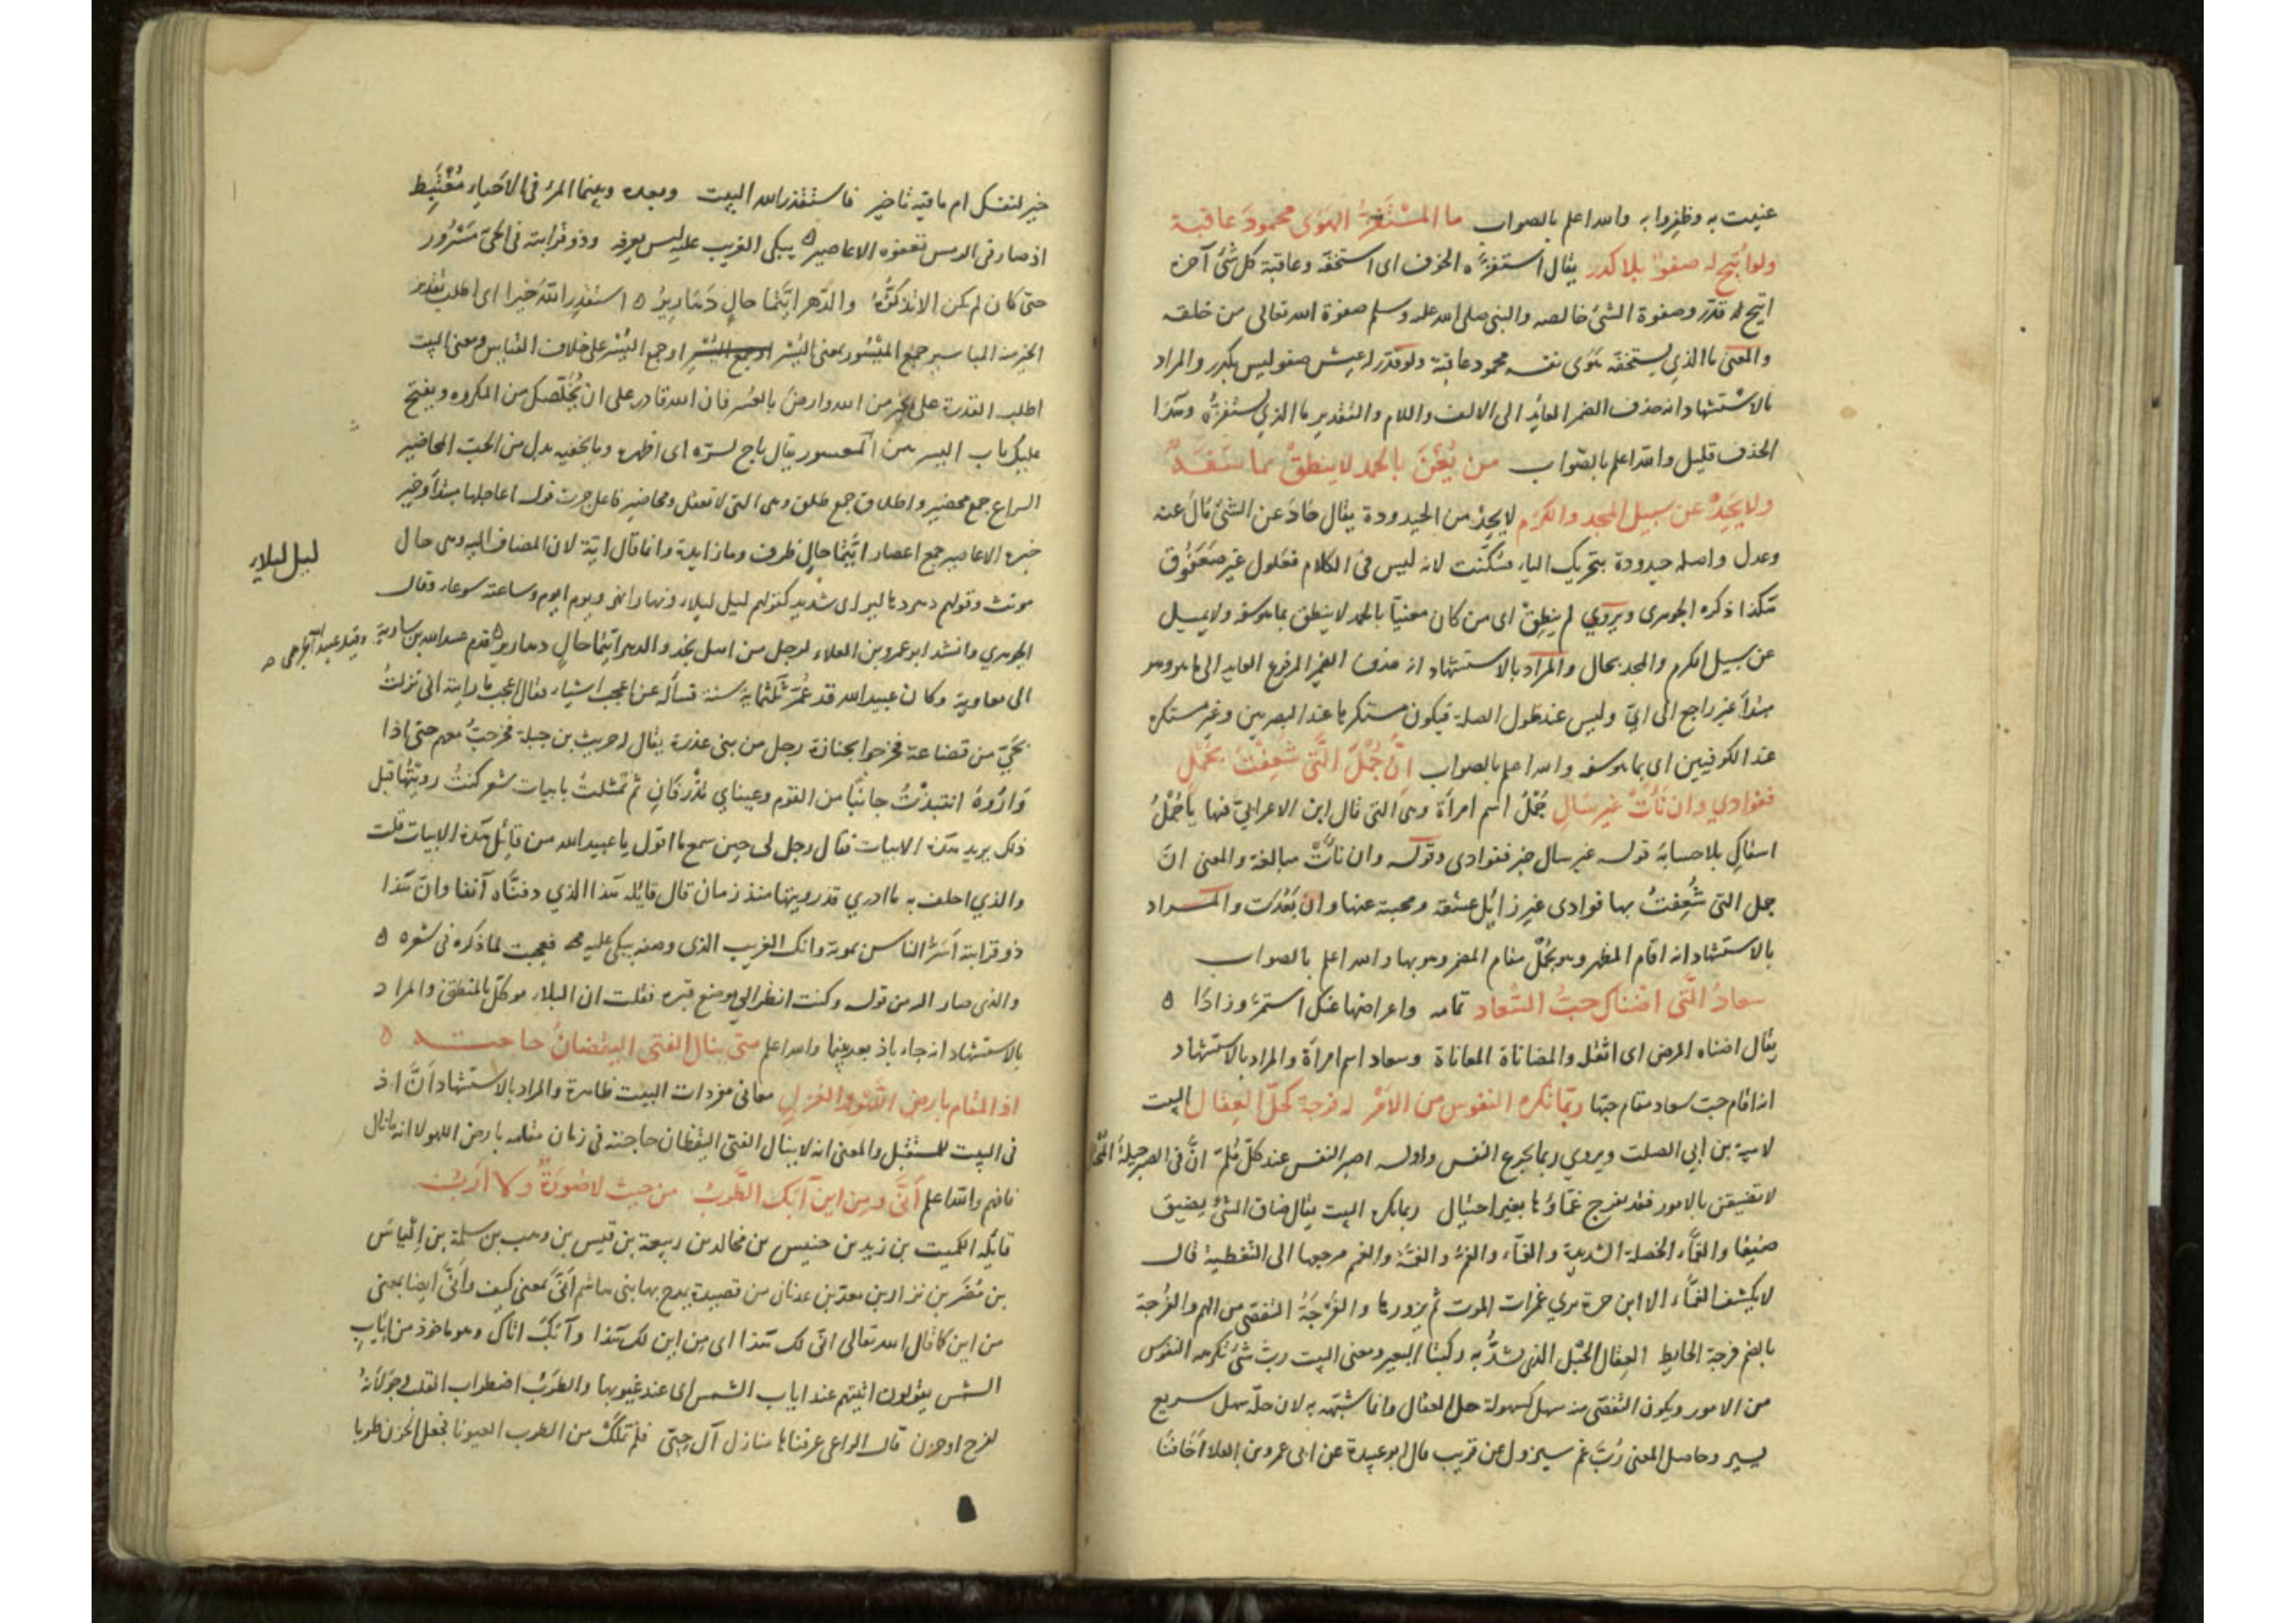 عنيت به وظفروا به والله اعلم بالصواب ما المستفز الهوى محمود عاقبة
ولو اتيح له صفو بلا كدر يقال استفزه الخوف اى استخفه وعاقبة كل شئ آخره
اتيح له قدر وصفوة الشئ خالصه والنبى صلى الله عليه وسلم صفوة الله تعالى من خلقه
والمعنى ما الذي يستخفه هوى نفسه محمود عاقبة ولو قدر له عيش صفو ليس بكدر والمراد
بالاستشهاد انه حذف الضمير العائد الى الالف واللام والتقدير ما الذي يستفزه وهذا
الحذف قليل والله اعلم بالصواب من يعن بالحمد لا ينطق بما سفه
ولا يحد عن سبيل المجد والكرم لا يحد من الحيدودة يقال حاد عن الشئ مال عنه
وعدل واصله حيدودة بتحريك الياء فسكنت لانه ليس فى الكلام فعلول غير صعفوق
هكذا ذكره الجوهرى ويروي لم ينطق اى من كان معنيا بالحمد لا ينطق بما هو سفه ولا يميل
عن سبيل الكرم والمجد بحال والمراد بالاستشهاد انه حذف الضمير المرفوع العايد الى ما هو وهو
مبتدأ غير راجع الى اي وليس عند طول الصلة فيكون مستكرها عند البصريين وغير مستكره
عند الكوفيين اى بما هو سفه والله اعلم بالصواب ان جمل التى شغفت بجمل
ففوادي وان نأت غير سال جمل اسم امرأة وهى التى قال ابن الاعرابي فيها يا جمل
اسقاك بلا حسابه قوله غير سال خبر ففوادى وقوله وان نأت مبالغة والمعنى ان
جمل التى شغفت بها فوادى غير زائل عشقه ومحبته عنها وان بعدت والمراد
بالاستشهاد انه اقام المظهر وهو بجمل مقام المضمر وهو بها والله اعلم بالصواب
سعاد التى اضناك حب السعاد تمامه واعراضها عنك استمر وزادا ٥
يقال اضناه المرض اى اثقله والمضاناة المعاناة وسعاد اسم امرأة والمراد بالاستشهاد
انه اقام حب سعاد مقام حبها ربما تكره النفوس من الامر له فرجة كحل العقال البيت
لامية بن ابي الصلت ويروي ربما تجزع النفس واوله اصبر النفس عند كل ملم ان فى الصبر حيلة المحتال
لا تضيقن بالامور فقد يفرج غماؤها بغير احتيال ربما تكره البيت يقال ضاق الشئ يضيق
ضيقا والغماء الخصلة الشديدة والغماء والغم والغمة والغم مرجعها الى التغطية قال
لا يكشف الغماء الا ابن حرة يري غمرات الموت ثم يزورها والفرجة التفصى من الهم والفرجة
بالضم فرجة الحايط العقال الحبل الذي تشد به ركبتا البعير ومعنى البيت رب شئ تكرهه النفوس
من الامور ويكون التفصى منه سهل كسهولة حل العقال وانما شبهه به لان حله سهل سريع
يسير وحاصل المعنى رب غم سيزول عن قريب قال ابو عبيدة عن ابى عمرو بن العلا اخافنا
خير لنفسك ام ما فيه تاخير فاستقدر الله البيت وبعده وبينما المرء فى الاحياء مغتبط
اذ صار فى الرمس تعفوه الاعاصير ٥ يبكى الغريب عليه ليس يعرفه وذو قرابته فى الحى مسرور
حتى كان لم يكن الا تذكره والدهر ايتما حال دهارير ٥ استقدر الله خيرا اى اطلب تقدير
الخير منه المياسير جمع الميسور بمعنى اليسر او جمع اليسر على خلاف القياس ومعنى البيت
اطلب القدرة على الخير من الله وارض بالعسر فان الله قادر على ان يخلصك من المكروه ويفتح
عليك باب اليسر من المعسور يقال باح لسره اى اظهره وما يخفيه بدل من الحب المحاضير
السراع جمع محضير واطلاق جمع طلق وهى التى لا تعقل ومحاضير فاعل جرت قوله اعاجلها مبتدأ وخير
خبره الاعاصير جمع اعصار ايتما حال ظرف وما زايدة وانما قال اية لان المضاف اليه وهى حال
مونث وقولهم دهر دهارير اى شديد كقولهم ليل ليلاء ونهار انهر ويوم ايوم وساعة سوعاء وقال
ليل ليلاء
الجوهري وانشد ابو عمرو بن العلاء لرجل من اهل نجد والدهر ايتما حال دهارير ٥ قدم عبد الله بن سارية وقيل عبيد الجرهمى
الى معاوية وكان عبيد الله قد عمر ثلثماية سنة فسأله عن اعجب اشياء فقال اعجب ما رايته انى نزلت
بحي من قضاعة فخرجوا بجنازة رجل من بنى عذرة يقال له حريث بن جبلة فخرجت معهم حتى اذا
واروه انتبذت جانبا من القوم وعيناي تذرفان ثم تمثلت بابيات شعر كنت رويتها قبل
ذلك يريد هذه الابيات فقال رجل لى حين سمع ما اقول يا عبيد الله من قائل هذه الابيات قلت
والذي احلف به ما ادري قد رويتها منذ زمان قال قايله هذا الذي دفناه آنفا وان هذا
ذو قرابته اسر الناس بموته وانك الغريب الذى وصفه يبكى عليه فعجبت لما ذكره فى شعره ٥
والذى صار اليه من قوله وكنت انظر الى موضع قبره فقلت ان البلاء موكل بالمنطق والمراد
بالاستشهاد انه جاء باذ بعد بينما والله اعلم متى ينال الفتى اليقضان حاجته ٥
اذ المقام بارض اللهو والغزل معانى مفردات البيت ظاهرة والمراد بالاستشهاد ان اذ
فى البيت للمستقبل والمعنى انه لا ينال الفتى اليقظان حاجته فى زمان مقامه بارض اللهو لا انه ما نال
فافهم والله اعلم انى ومن اين آبك الطرب من حيث لا صبوة ولا ريب
قايله الكميت بن زيد بن خنيس بن مخالد من ربيعة بن قيس بن وهب بن سلمة بن الياس
بن مضر بن نزار بن معد بن عدنان من قصيدة يمدح بها بنى هاشم انى بمعنى كيف وانى ايضا بمعنى
من اين كما قال الله تعالى انى لك هذا اى من اين لك هذا وآبك اتاك وهو ماخوذ من اياب
الشمس يقولون اتيتهم عند اياب الشمس اى عند غيوبها والطرب اضطراب القلب وجولانه
لفرح او حزن قال الراعى عرفناها منازل آل حبى فلم تملك من الطرب العيونا فجعل الحزن طربا